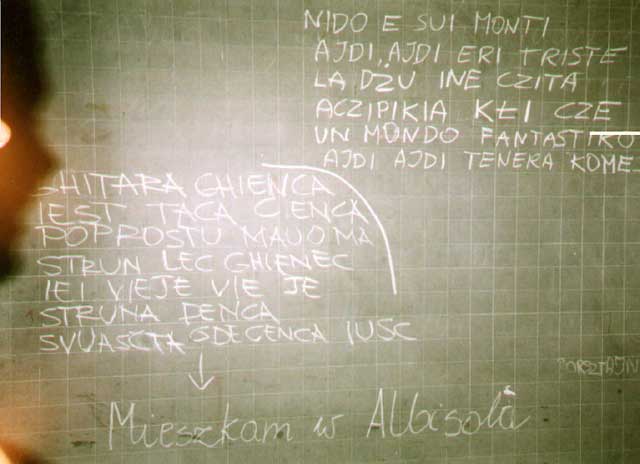 NIDO E SUI MONTI
AJDI, AJDI ERI TRISTE
LA DŻU INE CZITA
ACZIPIKIA KŁI CZE
UN MONDO FANTASTIKO
AJDI AJDI TENERA KOME
GHITARA GHIENCA
IEST TACA CIENCA
POPROSTU MAUO MA
STRUN LEC GHIENEC
IEI VIEJE VIE JE
STRUNA PENCA
SVUASCTA GDEGENCA IUSC
Mieszkam w Albisola